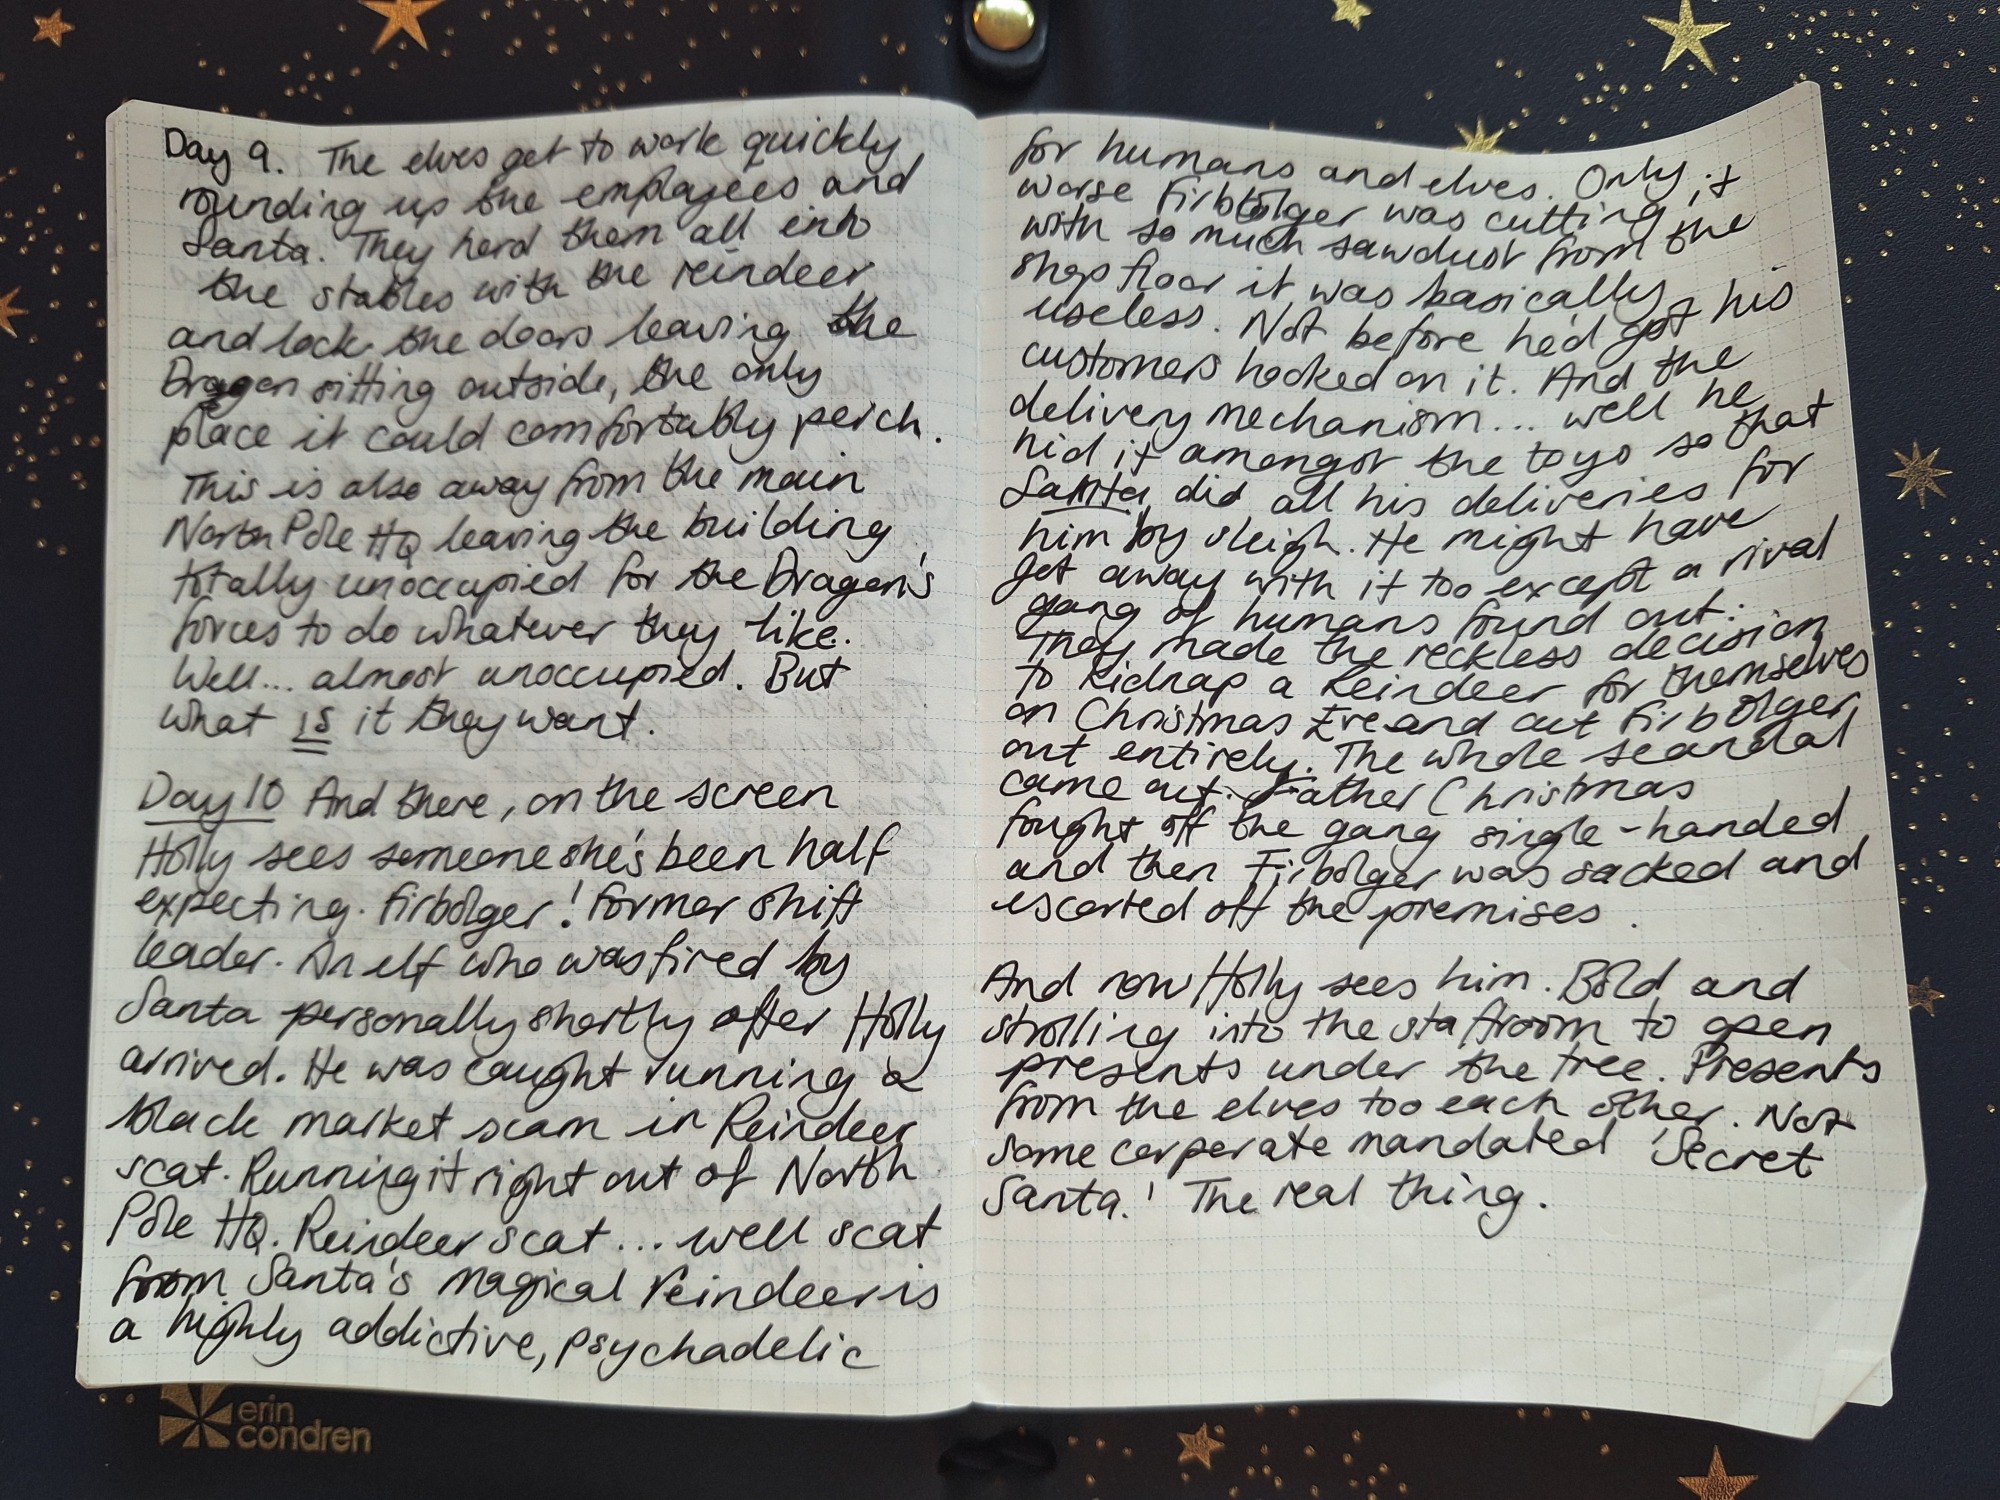 Day 9. The elves get to work quickly
rounding up the employees and
Santa. They herd them all into
the stables with the reindeer
and lock the doors leaving the
Dragon sitting outside, the only
place it could comfortably perch.
This is also away from the main
North Pole HQ leaving the building
totally unoccupied for the Dragon's
forces to do whatever they like.
Well... almost unoccupied. But
what is it they want.
Day 10 And there, on the screen
Holly sees someone she's been half
expecting. Firbolger! Former shift
leader. An elf who was fired by
Santa personally shortly after Holly
arrived. He was caught running a
black market scam in Reindeer
scat. Running it right out of North
Pole HQ. Reindeer scat... well scat
from Santa's magical reindeer is
a highly addictive, psychadelic
for humans and elves. Only it
worse Firbolger was cutting it
with so much sawdust from the
shop floor it was basically
useless. Not before he'd got his
customers hooked on it. And the
delivery mechanism... well he
hid it amongst the toys so that
Santa did all his deliveries for
him by sleigh. He might have
got away with it too except a rival
gang of humans found out.
They made the reckless decision
to kidnap a Reindeer for themselves
on Christmas Eve and cut Firbolger
out entirely. The whole scandal
came out. Father Christmas
fought off the gang single-handed
and then Firbolger was sacked and
escorted off the premises.
And now Holly sees him. Bold and
strolling into the staffroom to open
presents under the tree. Presents
from the elves too each other. Not
some corperate mandated 'Secret
Santa.' The real thing.
erin
condren